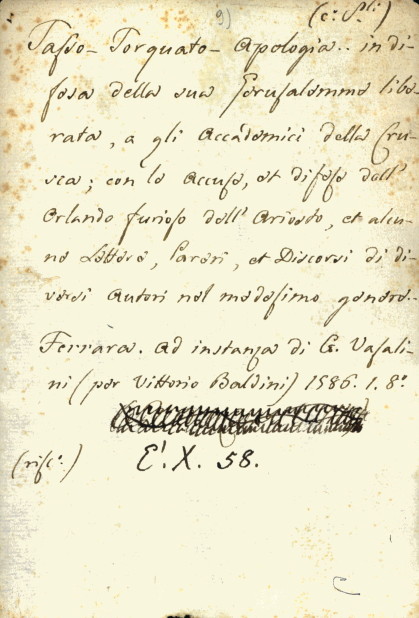 9)
(c: S.li)
Tasso- Torquato- Apologia.. in di-
fesa della sua Gerusalemme libe-
rata, a gli Accademici della Cru-
sca; con le Accuse, et difese dell'
Orlando furioso dell' Ariosto, et alcu-
ne Lettere, Pareri, et Discorsi di di-
versi Autori nel medesimo genere..
Ferrara. Ad instanza di G. Vasali-
ni (per Vittorio Baldini) 1586. 1. 8.°
(risc.°) E'. X. 58.